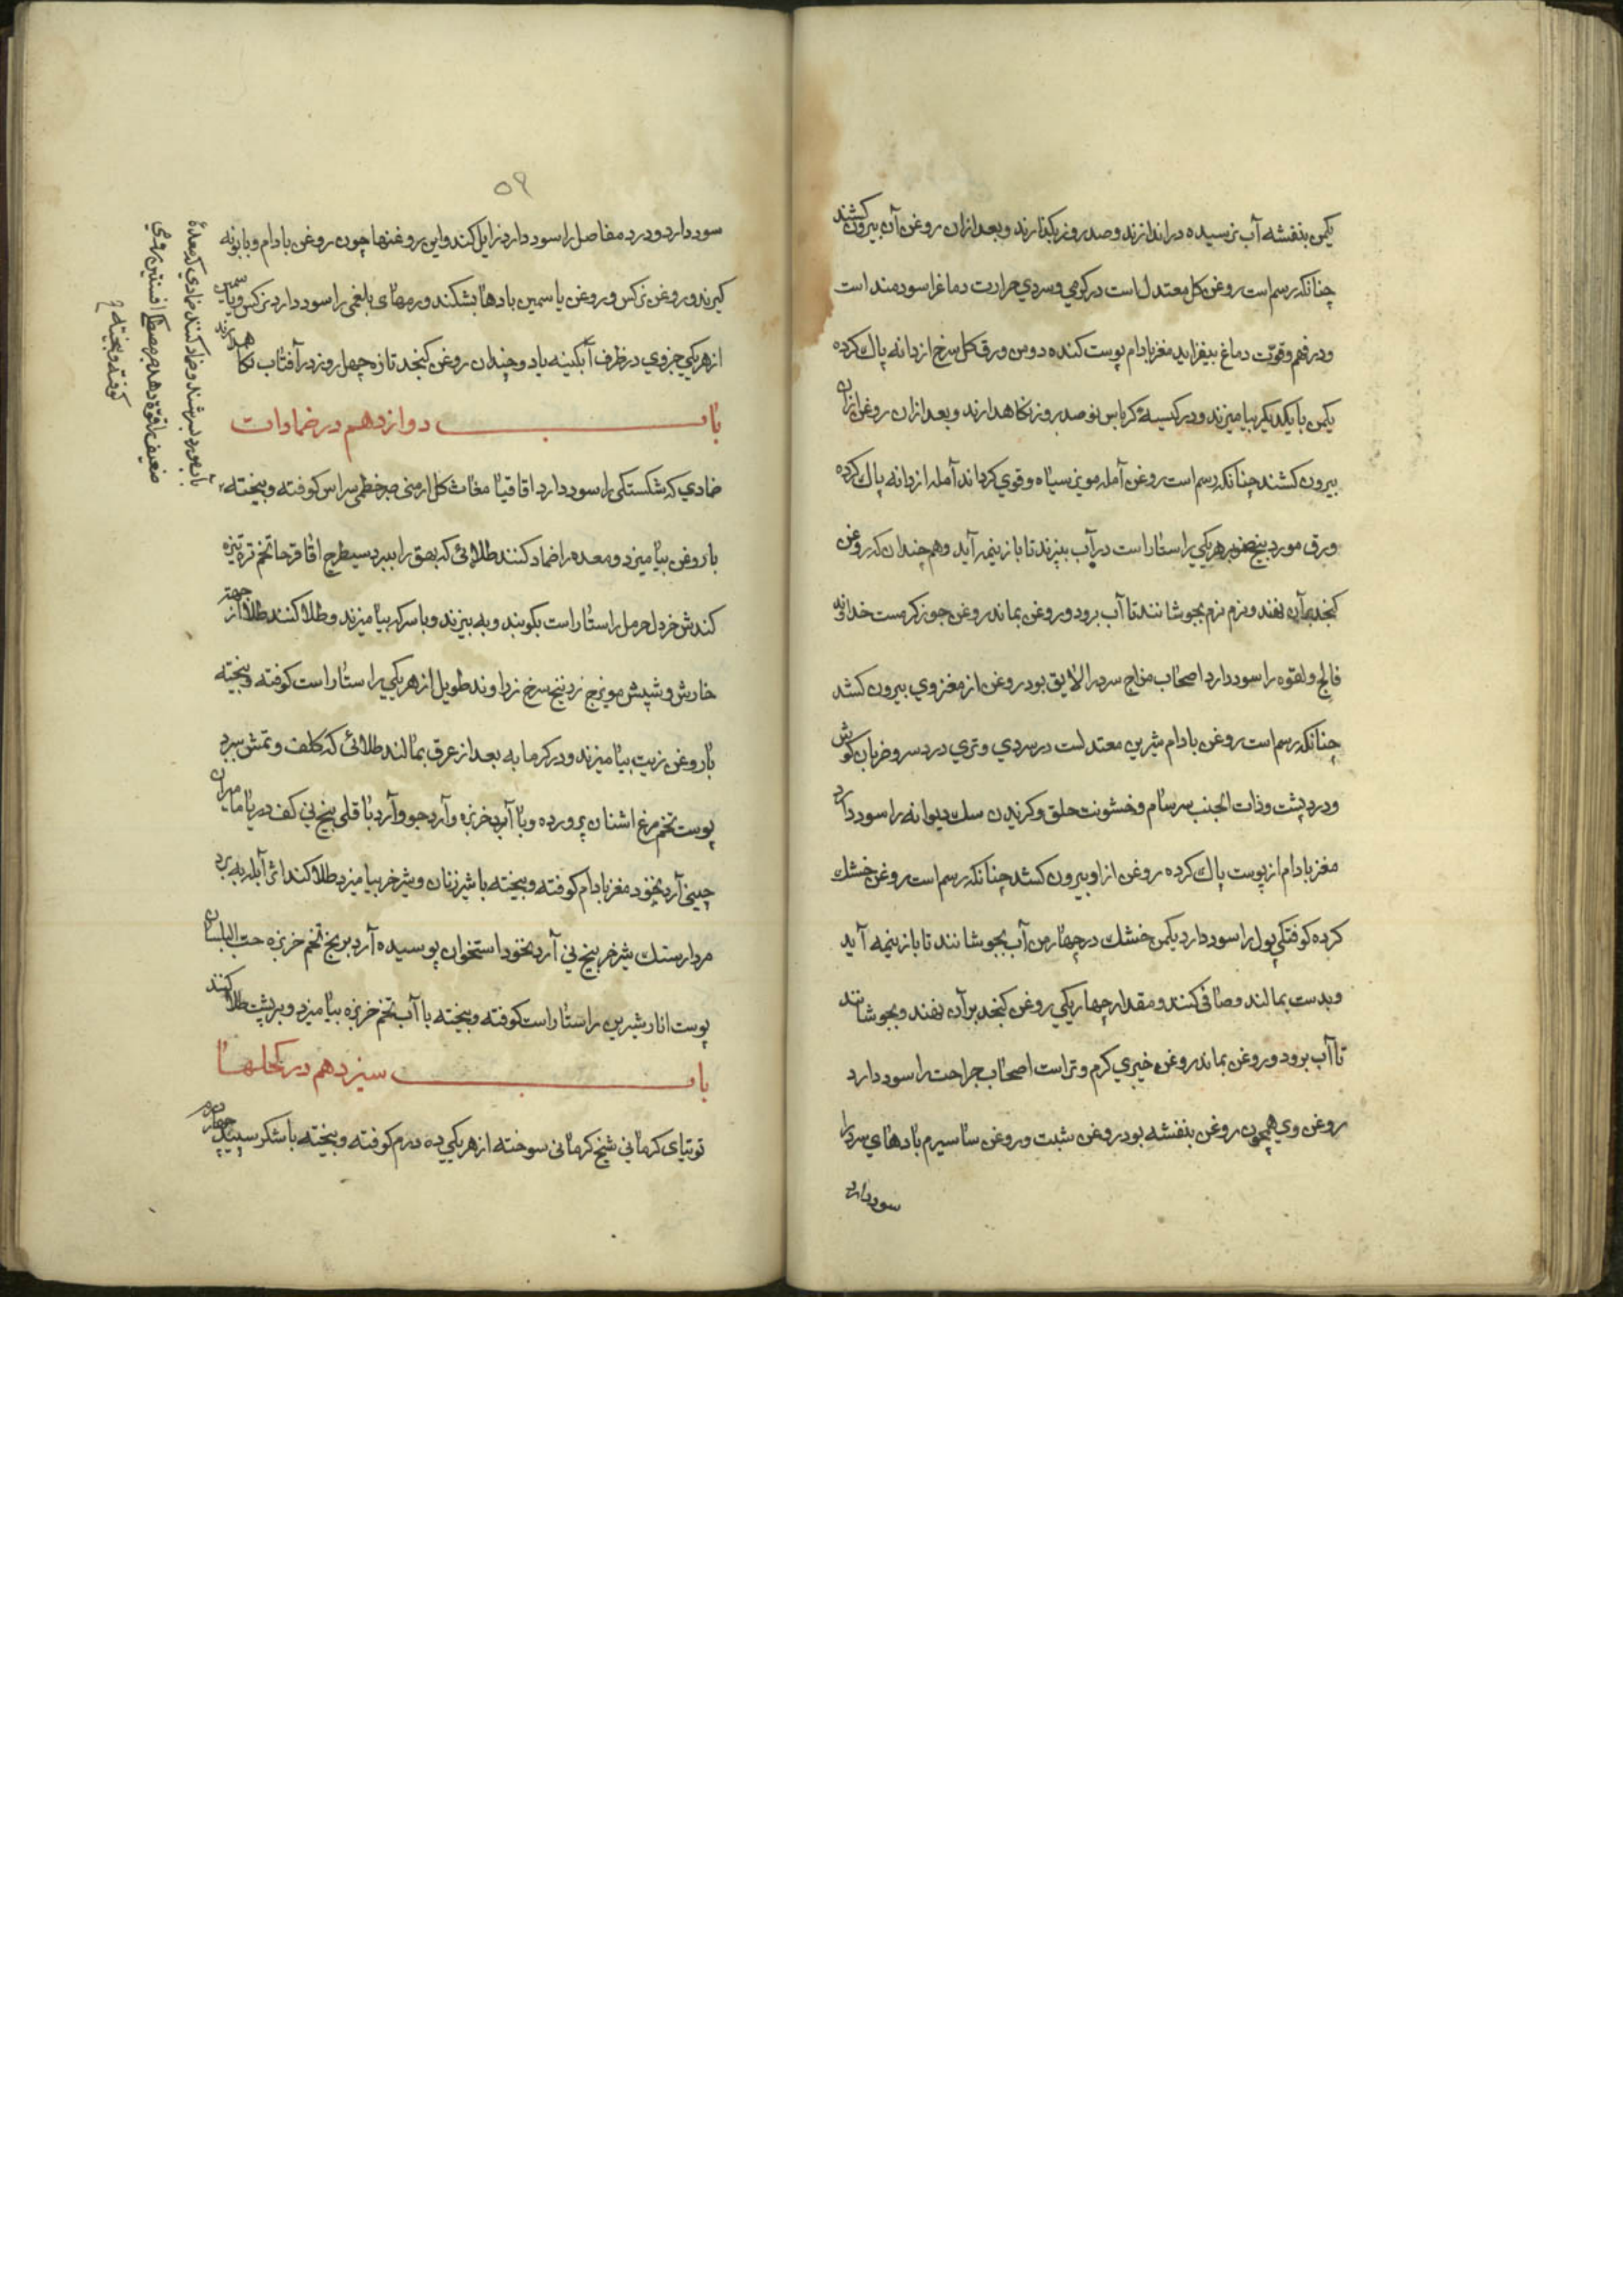 یکمن بنفشه آب نرسیده در اندازند و صد روز بکذارند و بعد ازان روغن آن بیرون کشند
چنانکه رسم است روغن کل معتدل است در کرمي و سردي حرارت دماغرا سودمند است
و در فهم و قوّت دماغ بیفزاید مغز بادام پوست کنده دو من ورق کل سرخ از دانه پاك کرده
یکمن با یکدیکر بیامیزند و در کیسهٔ کرباس نو صد روز نکاهدارند و بعد ازان روغن ازان
بیرون کشند چنانکه رسم است روغن آمله مویرا سیاه و قوي کرداند آمله از دانه پاك کرده
ورق مورد بیخ صنوبر هریکي راستاراست در آب بپزند تا باز نیمه آید و هم چندان که روغن
کنجد بران نهند و نرم نرم بجوشانند تا آب برود و روغن بماند روغن جوز کرمست خداوند
فالج و لقوه را سود دارد اصحاب مزاج سرد را لایق بود روغن از مغز وي بیرون کشد
چنانکه رسم است روغن بادام شیرین معتدلست در سردي و تري درد سر و ضربان کوش
و درد پشت و ذات الجنب سرسام و خشونت حلق و کزیدن سك دیوانه را سود دارد
مغز بادام از پوست پاك کرده روغن از او بیرون کشد چنانکه رسم است روغن خشك
کرده کوفتکي پول را سود دارد یکمن خشك در چهار من آب بجوشانند تا باز نیمه آید
و بدست بمالند و صافی کنند و مقدار چهار یکي روغن کنجد بر آن نهند و بجوشانند
تا آب برود و روغن بماند روغن خیري کرم و تر است اصحاب جراحت را سود دارد
روغن وي همچون روغن بنفشه بود روغن شبت و روغن سا سیرم بادهاي سرد را
سود دارد
٥٩
سود دارد و درد مفاصل را سود دارد زایل کند و این روغنها چون روغن بادام و بابونه
کیرند و روغن نرکس و روغن یاسمین بادها بشکند ورمهای بلغمی را سود دارد نرکس و یاسمین
از هریکي جزوي در ظرف آبکینه یاد و چندان روغن کنجد تازه چهل روز در آفتاب نکاهدارند
باب دوازدهم در ضمادات
ضمادي که شکستکی را سود دارد اقاقیا مغاث کل ارمنی صبر خطمی سراس کوفته و بیخته
با روغن بیامیزد و معده را ضماد کنند طلائی که بهق را ببرد سیطرج اقاقرحا تخم تره تیزه
کندش خردل حرمل راستاراست بکوبند و به بیزند و با سرکه بیامیزند و طلا کنند طلا از جهة
خارش و شپش مویزج زرنیخ سرخ زراوند طویل از هریکي راستاراست کوفته و بیخته
با روغن زیت بیامیزند و در کرمابه بعد از عرق بمالند طلائی که کلف و نمش ببرد
پوست تخم مرغ اشنان پرورده و با آب خربزه و آرد جو و آرد باقلی بیخ نی کف دریا مامیران
چینی آرد نخود مغز بادام کوفته و بیخته با شیر زنان و شیر خر بیامیزد طلا کند اثر آبله به برد
مردارسنك شیر خر بیخ نی آرد نخود استخوان پوسیده آرد برنج تخم خربزه حب البلسان
پوست انار شیرین راستاراست کوفته و بیخته با آب تخم خربزه بیامیزد و بر پشت طلا کنند
باب سیزدهم در کحلها
توتیای کرمانی شیخ کرمانی سوخته از هریکي ده درم کوفته و بیخته با شکر سپید چهار درم
بآب مورد بسرشند و ضماد کنند ضمادي که معدهٔ
ضعیف را قوّة دهد مصطکا افسنتین رومي
کوفته و بیخته